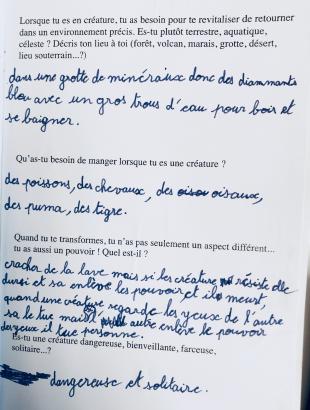 Lorsque tu es en créature, tu as besoin pour te revitaliser de retourner
dans un environnement précis. Es-tu plutôt terrestre, aquatique,
céleste ? Décris ton lieu à toi (forêt, volcan, marais, grotte, désert,
lieu souterrain...?)
dans une grotte de minéraux donc des diammants
bleu avec un gros trous d'eau pour boir et
se baigner.
Qu'as-tu besoin de manger lorsque tu es une créature ?
des poissons, des chevaux, des oisaux,
des puma, des tigre.
Quand tu te transformes, tu n'as pas seulement un aspect différent...
tu as aussi un pouvoir ! Quel est-il ?
cracher de la lave mais si les créature résiste elle
dursi et sa enlève les pouvoir et ils meurt,
quand une créature regarde les yeux de l'autre
sa le tue mais autre enlève le pouvoir
des yeux il tue personne.
Es-tu une créature dangereuse, bienveillante, farceuse,
solitaire...?
dangereuse et solitaire.